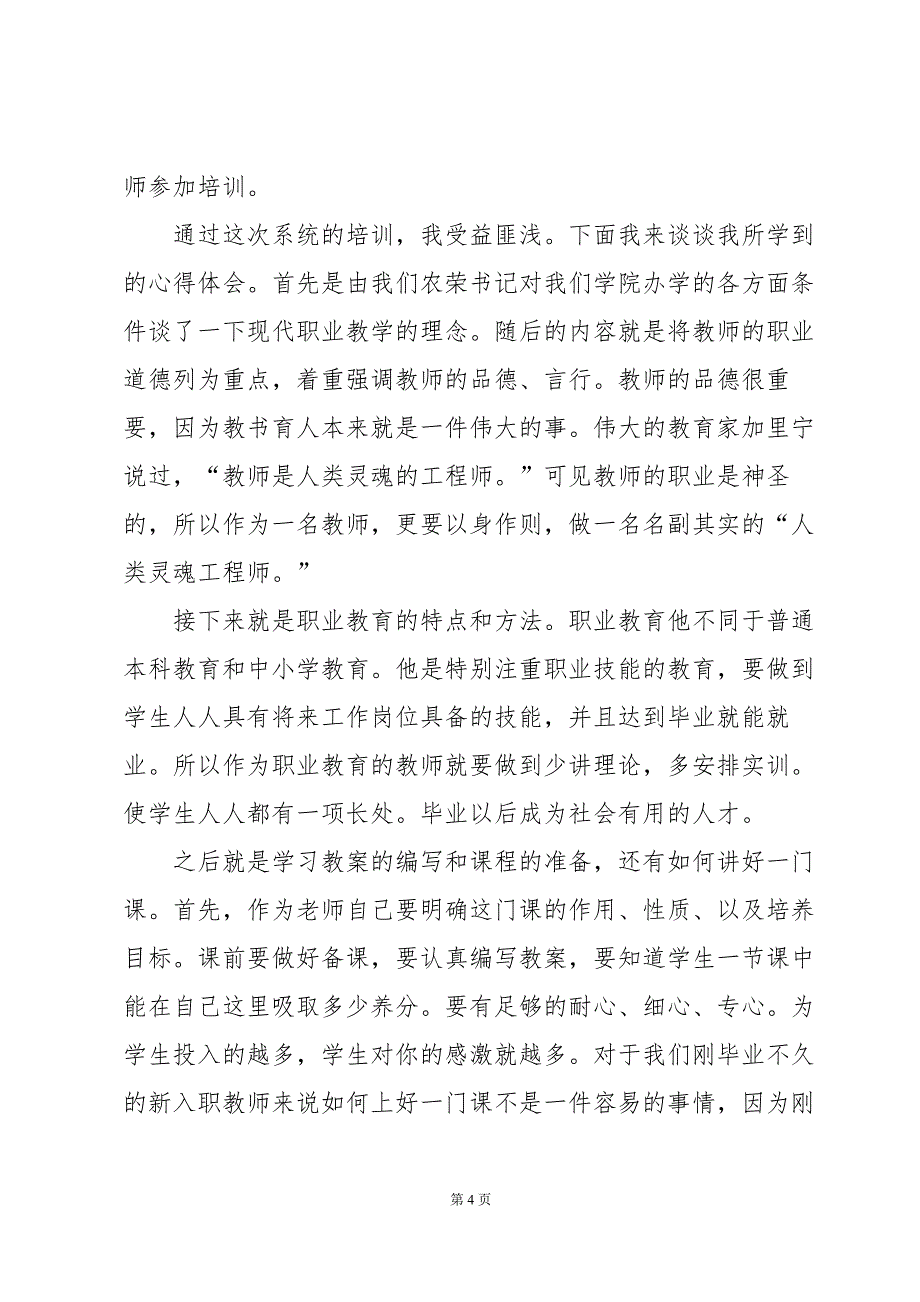 师参加培训。
通过这次系统的培训，我受益匪浅。下面我来谈谈我所学到
的心得体会。首先是由我们农荣书记对我们学院办学的各方面条
件谈了一下现代职业教学的理念。随后的内容就是将教师的职业
道德列为重点，着重强调教师的品德、言行。教师的品德很重
要，因为教书育人本来就是一件伟大的事。伟大的教育家加里宁
说过，“教师是人类灵魂的工程师。”可见教师的职业是神圣
的，所以作为一名教师，更要以身作则，做一名名副其实的“人
类灵魂工程师。”
接下来就是职业教育的特点和方法。职业教育他不同于普通
本科教育和中小学教育。他是特别注重职业技能的教育，要做到
学生人人具有将来工作岗位具备的技能，并且达到毕业就能就
业。所以作为职业教育的教师就要做到少讲理论，多安排实训。
使学生人人都有一项长处。毕业以后成为社会有用的人才。
之后就是学习教案的编写和课程的准备，还有如何讲好一门
课。首先，作为老师自己要明确这门课的作用、性质、以及培养
目标。课前要做好备课，要认真编写教案，要知道学生一节课中
能在自己这里吸取多少养分。要有足够的耐心、细心、专心。为
学生投入的越多，学生对你的感激就越多。对于我们刚毕业不久
的新入职教师来说如何上好一门课不是一件容易的事情，因为刚
第 4 页